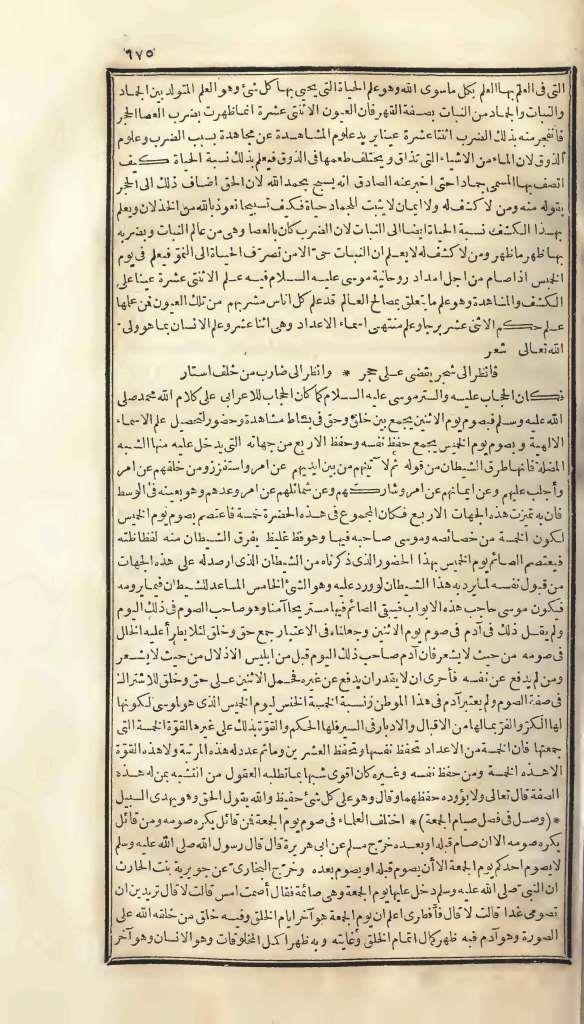 ٦٧٥
التى فى العلم بها العلم بكل ماسوى الله وهو علم الحياة التى يحيى بها كل شئ وهو العلم المتولد بين الجماد
والنبات والجماد من النبات بصفة القهر فان العيون الاثنتى عشرة انما ظهرت بضرب العصا الحجر
فانفجر منه بذلك الضرب اثنتا عشرة عينا يريد علوم المشاهدة عن مجاهدة بسبب الضرب وعلوم
الذوق لان الماء من الاشياء التى تذاق ويختلف طعمها فى الذوق فيعلم بذلك نسبة الحياة كيف
اتصف بها المسمى جماد احتى اخبر عنه الصادق انه يسبح بحمد الله لان الحق اضاف ذلك الى الحجر
بقوله منه ومن لا كشف له ولا ايمان لا يثبت للجماد حياة فكيف تسبيحا نعوذ بالله من الخذلان ويعلم
بهذا الكشف نسبة الحياة ايضا الى النبات لان الضرب كان بالعصا وهى من عالم النبات وبضربه
بها ظهر ما ظهر ومن لا كشف له لا يعلم ان النبات حى الا من تصرف الحياة الى النمو فيعلم فى يوم
الخميس اذا صام من اجل امداد روحانية موسى عليه السلام فيه علم الاثنتى عشرة عينا على
الكشف والمشاهدة وهو علم ما يتعلق بمصالح العالم قد علم كل اناس مشربهم من تلك العيون فمن علمها
علم حكم الاثنى عشر برجا وعلم منتهى اسماء الاعداد وهى اثنا عشر وعلم الانسان بما هو ولى
الله تعالى شعر
فانظر الى شجر يقضى على حجر * وانظر الى ضارب من خلف استار
فكان الحجاب عليه والستر موسى عليه السلام كما كان الحجاب للاعرابى على كلام الله محمد صلى
الله عليه وسلم فبصوم يوم الاثنين يجمع بين خلق وحق فى بساط مشاهدة وحضور لتحصيل علم الاسماء
الالهية وبصوم يوم الخميس يجمع حفظ نفسه وحفظ الاربع من جهاته التى يدخل عليه منها الشبه
المضلة فانها طرق الشيطان من قوله ثم لآتينهم من بين ايديهم عن امر واستفزز ومن خلفهم عن امر
وأجلب عليهم وعن ايمانهم عن امر وشاركهم وعن شمائلهم عن امر وعدهم وهو بعينه فى الوسط
فان به تميزت هذه الجهات الاربع فكان المجموع فى هذه الحضرة خمسة فاعتصم بصوم يوم الخميس
لكون الخمسة من خصائصه وموسى صاحبه فيها وهو فظ غليظ يفرق الشيطان منه لفظاظته
فيعتصم الصائم يوم الخميس بهذا الحضور الذى ذكرناه من الشيطان الذى ارصد له على هذه الجهات
من قبول نفسه لما يرد به هذا الشيطان لو ورد عليه وهو الشئ الخامس المساعد للشيطان فيما يرومه
فيكون موسى حاجب هذه الابواب فيبقى الصائم فيها مستريحا آمنا وهو صاحب الصوم فى ذلك اليوم
ولم يقل ذلك فى آدم فى صوم يوم الاثنين وجعلناه فى الاعتبار جمع حق وخلق لئلا يطرأ عليه الخلل
فى صومه من حيث لا يشعر فان آدم صاحب ذلك اليوم قبل من ابليس الاذلال من حيث لا يشعر
ومن لم يدفع عن نفسه فأحرى ان لا يقدر ان يدفع عن غيره فحمل الاثنين على حق وخلق للاشتراك
فى صفة الصوم ولم يعتبر آدم فى هذا الموطن ونسبة الخمسة الخنس ليوم الخميس الذى هو لموسى لكونها
لها الكر والفر بما لها من الاقبال والادبار فى السير فلها الحكم والقوة بذلك على غيرها القوة الخمسة التى
جمعتها فان الخمسة من الاعداد تحفظ نفسها وتحفظ العشرين وما ثم عدد له هذه المرتبة ولا هذه القوة
الا هذه الخمسة ومن حفظ نفسه وغيره كان اقوى شبها بما تطلبه العقول من التشبه بمن له هذه
الصفة قال تعالى ولا يؤوده حفظهما وقال وهو على كل شئ حفيظ والله يقول الحق وهو يهدى السبيل
* (وصل فى فصل صيام الجمعة) * اختلف العلماء فى صوم يوم الجمعة فمن قائل يكره صومه ومن قائل
يكره صومه الا ان صام قبله او بعده خرّج مسلم عن ابى هريرة قال قال رسول الله صلى الله عليه وسلم
لا يصوم احدكم يوم الجمعة الا أن يصوم قبله او يصوم بعده وخرّج البخارى عن جويرية بنت الحارث
ان النبى صلى الله عليه وسلم دخل عليها يوم الجمعة وهى صائمة فقال أصمت امس قالت لا قال تريدين ان
تصومى غدا قالت لا قال فأفطرى اعلم ان يوم الجمعة هو آخر ايام الخلق وفيه خلق من خلقه الله على
الصورة وهو آدم فبه ظهر كمال اتمام الخلق وغايته وبه ظهر اكمل المخلوقات وهو الانسان وهو آخر